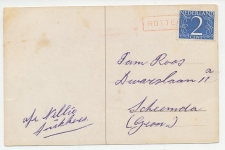 NEDERLAND
2
Fam Roos
Dwarslaan 11a
Scheemda
(Gron.)
afz. Nellie